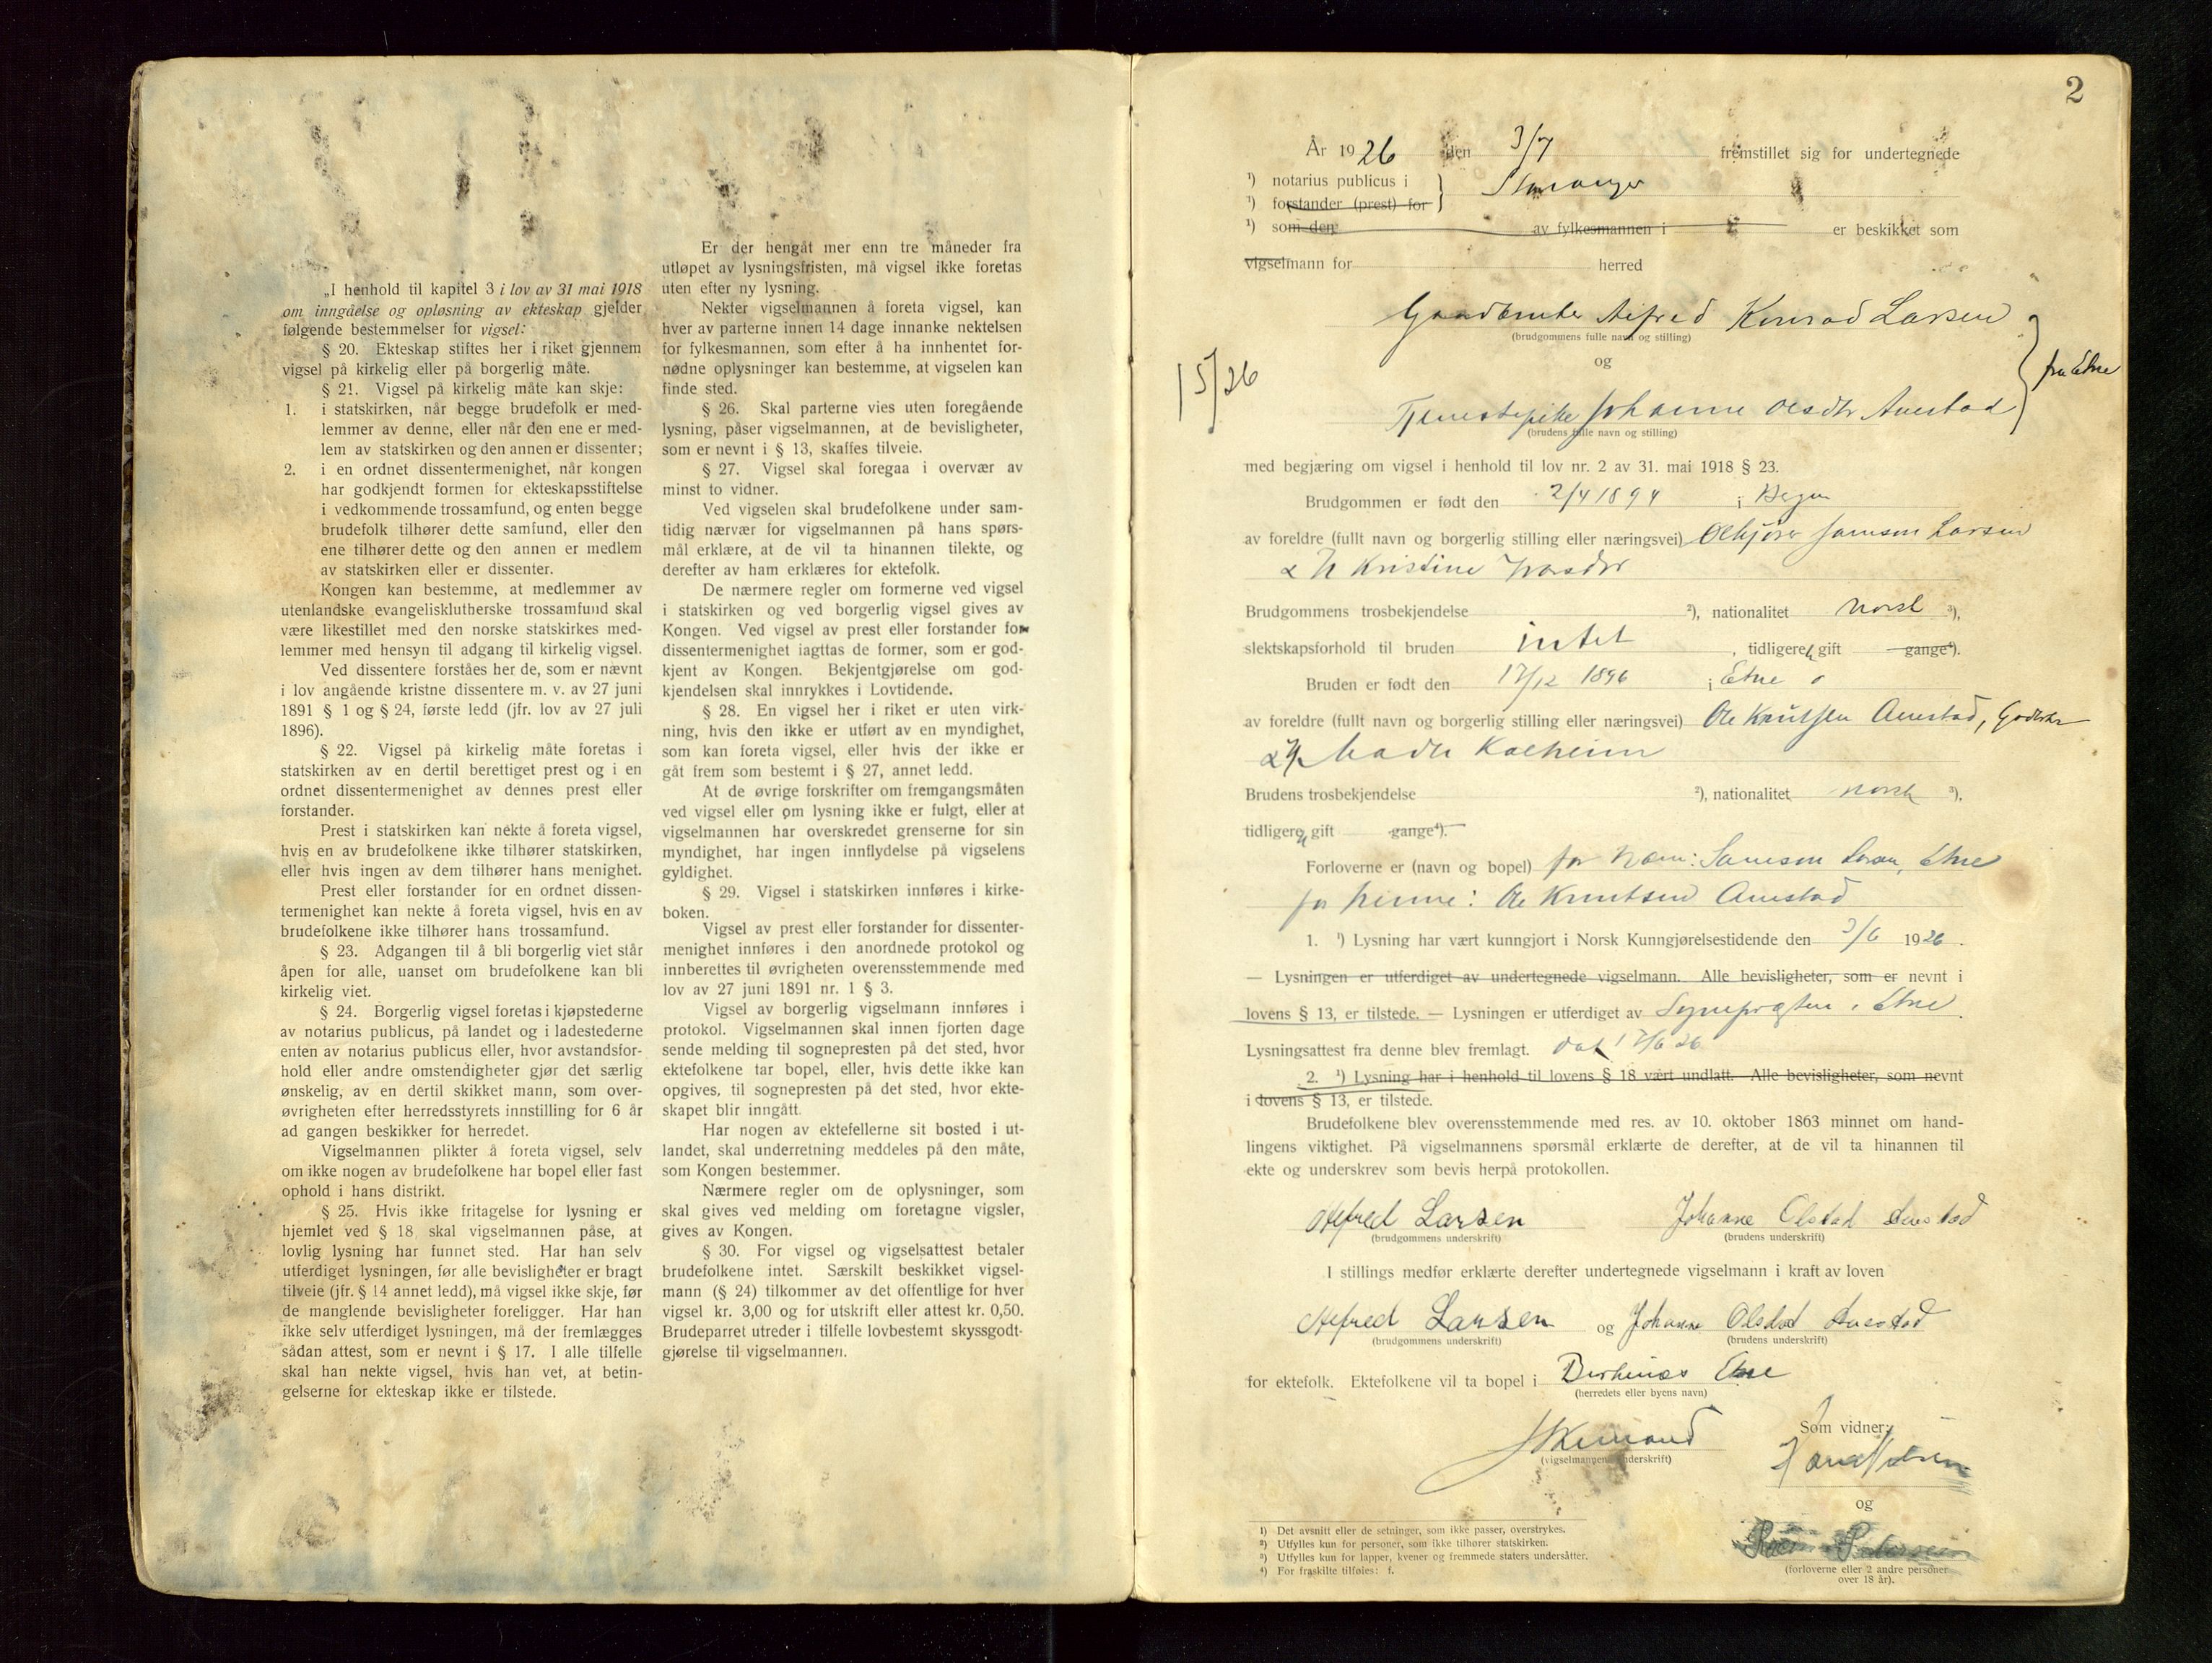 „I henhold til kapitel 3 i lov av 31 mai 1918
om inngåelse og opløsning av ekteskap gjelder
følgende bestemmelser for vigsel:
§ 20. Ekteskap stiftes her i riket gjennem
vigsel på kirkelig eller på borgerlig måte.
§ 21. Vigsel på kirkelig måte kan skje:
1. i statskirken, når begge brudefolk er med-
lemmer av denne, eller når den ene er med-
lem av statskirken og den annen er dissenter;
2. i en ordnet dissentermenighet, når kongen
har godkjendt formen for ekteskapsstiftelse
i vedkommende trossamfund, og enten begge
brudefolk tilhører dette samfund, eller den
ene tilhører dette og den annen er medlem
av statskirken eller er dissenter.
Kongen kan bestemme, at medlemmer av
utenlandske evangelisklutherske trossamfund skal
være likestillet med den norske statskirkes med-
lemmer med hensyn til adgang til kirkelig vigsel.
Ved dissentere forståes her de, som er nævnt
i lov angående kristne dissentere m. v. av 27 juni
1891 § 1 og § 24, første ledd (jfr. lov av 27 juli
1896).
§ 22. Vigsel på kirkelig måte foretas i
statskirken av en dertil berettiget prest og i en
ordnet dissentermenighet av dennes prest eller
forstander.
Prest i statskirken kan nekte å foreta vigsel,
hvis en av brudefolkene ikke tilhører statskirken,
eller hvis ingen av dem tilhører hans menighet.
Prest eller forstander for en ordnet dissen-
termenighet kan nekte å foreta vigsel, hvis en av
brudefolkene ikke tilhører hans trossamfund.
§ 23. Adgangen til å bli borgerlig viet står
åpen for alle, uanset om brudefolkene kan bli
kirkelig viet.
§ 24. Borgerlig vigsel foretas i kjøpstederne
av notarius publicus, på landet og i ladestederne
enten av notarius publicus eller, hvor avstandsfor-
hold eller andre omstendigheter gjør det særlig
ønskelig, av en dertil skikket mann, som over-
øvrigheten efter herredsstyrets innstilling for 6 år
ad gangen beskikker for herredet.
Vigselmannen plikter å foreta vigsel, selv
om ikke nogen av brudefolkene har bopel eller fast
ophold i hans distrikt.
§ 25. Hvis ikke fritagelse for lysning er
hjemlet ved § 18, skal vigselmannen påse, at
lovlig lysning har funnet sted. Har han selv
utferdiget lysningen, før alle bevisligheter er bragt
tilveie (jfr. § 14 annet ledd), må vigsel ikke skje, før
de manglende bevisligheter foreligger. Har han
ikke selv utferdiget lysningen, må der fremlægges
sådan attest, som er nevnt i § 17. I alle tilfelle
skal han nekte vigsel, hvis han vet, at betin-
gelserne for ekteskap ikke er tilstede.
Er der hengåt mer enn tre måneder fra
utløpet av lysningsfristen, må vigsel ikke foretas
uten efter ny lysning.
Nekter vigselmannen å foreta vigsel, kan
hver av parterne innen 14 dage innanke nektelsen
for fylkesmannen, som efter å ha innhentet for-
nødne oplysninger kan bestemme, at vigselen kan
finde sted.
§ 26. Skal parterne vies uten foregående
lysning, påser vigselmannen, at de bevisligheter,
som er nevnt i § 13, skaffes tilveie.
§ 27. Vigsel skal foregaa i overvær av
minst to vidner.
Ved vigselen skal brudefolkene under sam-
tidig nærvær for vigselmannen på hans spørs-
mål erklære, at de vil ta hinannen tilekte, og
derefter av ham erklæres for ektefolk.
De nærmere regler om formerne ved vigsel
i statskirken og ved borgerlig vigsel gives av
Kongen. Ved vigsel av prest eller forstander for
dissentermenighet iagttas de former, som er god-
kjent av Kongen. Bekjentgjørelse om god-
kjendelsen skal innrykkes i Lovtidende.
§ 28. En vigsel her i riket er uten virk-
ning, hvis den ikke er utført av en myndighet,
som kan foreta vigsel, eller hvis der ikke er
gåt frem som bestemt i § 27, annet ledd.
At de øvrige forskrifter om fremgangsmåten
ved vigsel eller om lysning ikke er fulgt, eller at
vigselmannen har overskredet grenserne for sin
myndighet, har ingen innflydelse på vigselens
gyldighet.
§ 29. Vigsel i statskirken innføres i kirke-
boken.
Vigsel av prest eller forstander for dissenter-
menighet innføres i den anordnede protokol og
innberettes til øvrigheten overensstemmende med
lov av 27 juni 1891 nr. 1 § 3.
Vigsel av borgerlig vigselmann innføres i
protokol. Vigselmannen skal innen fjorten dage
sende melding til sognepresten på det sted, hvor
ektefolkene tar bopel, eller, hvis dette ikke kan
opgives, til sognepresten på det sted, hvor ekte-
skapet blir inngått.
Har nogen av ektefellerne sit bosted i ut-
landet, skal underretning meddeles på den måte,
som Kongen bestemmer.
Nærmere regler om de oplysninger, som
skal gives ved melding om foretagne vigsler,
gives av Kongen.
§ 30. For vigsel og vigselsattest betaler
brudefolkene intet. Særskilt beskikket vigsel-
mann (§ 24) tilkommer av det offentlige for hver
vigsel kr. 3,00 og for utskrift eller attest kr. 0,50.
Brudeparret utreder i tilfelle lovbestemt skyssgodt-
gjørelse til vigselmannen.
2
År 1926 den 3/7 fremstillet sig for undertegnede
¹) notarius publicus i Stavanger
¹) forstander (prest) for
¹) som den av fylkesmannen i er beskikket som
vigselmann for herred
Gaardbruker Alfred Konrad Larsen
(brudgommens fulle navn og stilling)
og
fra Etne
15/26
Tjenestepike Johanne Olsdtr Austad
(brudens fulle navn og stilling)
med begjæring om vigsel i henhold til lov nr. 2 av 31. mai 1918 § 23.
Brudgommen er født den 2/4 1894 i Bergen
av foreldre (fullt navn og borgerlig stilling eller næringsvei) Samson Larsen
& H Kristine
Brudgommens trosbekjendelse ²), nationalitet norsk ³),
slektskapsforhold til bruden intet, tidligere gift gange⁴).
Bruden er født den 17/12 1896 i Etne
av foreldre (fullt navn og borgerlig stilling eller næringsvei) Ole Knutsen Austad,
& H Kalheim
Brudens trosbekjendelse ²), nationalitet norsk ³),
tidligere gift gange⁴).
Forloverne er (navn og bopel) for ham: Samson Larsen, Etne
for henne: Ole Knutsen Austad
1. ¹) Lysning har vært kunngjort i Norsk Kunngjørelsestidende den 3/6 1926.
— Lysningen er utferdiget av undertegnede vigselmann. Alle bevisligheter, som er nevnt i
lovens § 13, er tilstede. — Lysningen er utferdiget av Sognepræsten i Etne.
Lysningsattest fra denne blev fremlagt. dat 17/6 26
2. ¹) Lysning har i henhold til lovens § 18 vært undlatt. Alle bevisligheter, som nevnt
i lovens § 13, er tilstede.
Brudefolkene blev overensstemmende med res. av 10. oktober 1863 minnet om hand-
lingens viktighet. På vigselmannens spørsmål erklærte de derefter, at de vil ta hinannen til
ekte og underskrev som bevis herpå protokollen.
Alfred Larsen Johanne Olsdad Austad
(brudgommens underskrift) (brudens underskrift)
I stillings medfør erklærte derefter undertegnede vigselmann i kraft av loven
Alfred Larsen og Johanne Olsdad Austad
(brudgommens underskrift) (brudens underskrift)
for ektefolk. Ektefolkene vil ta bopel i Etne
(herredets eller byens navn)
Som vidner:
(vigselmannens underskrift)
og
Petersen
(forloverne eller 2 andre personer
over 18 år).
¹) Det avsnitt eller de setninger, som ikke passer, overstrykes.
²) Utfylles kun for personer, som ikke tilhører statskirken.
³) Utfylles kun for lapper, kvener og fremmede staters undersåtter.
⁴) For fraskilte tilføies: f.